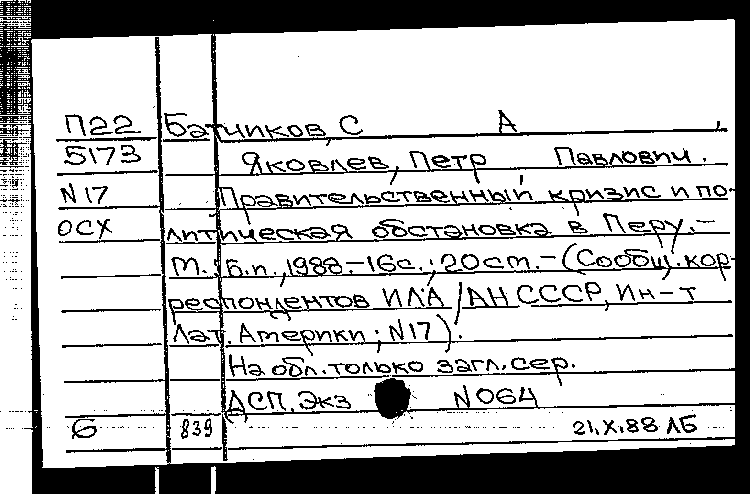 П22 Батчиков, С А ,
5173 Яковлев, Петр Павлович.
N17 Правительственный кризис и по-
ОСХ литическая обстановка в Перу.-
М.: Б.и., 1988.-16с.; 20см.-(Сообщ. кор-
респондентов ИЛА /АН СССР, Ин-т
Лат. Америки; N17).
На обл. только загл. сер.
ДСП. Экз N064
6 839 21.X.88 ЛБ